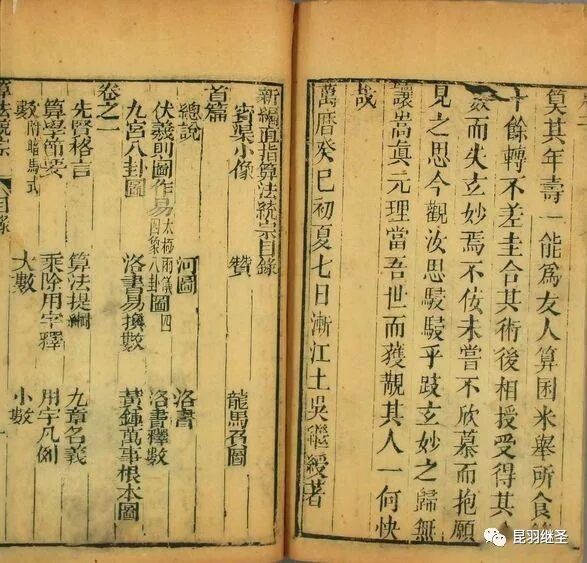 筭其年壽一能爲友人算囷米舉所食
十餘轉不差圭合其術後相授受得其
數而失玄妙焉不佞未嘗不欣慕而抱願
見之思今觀汝思駸駸乎跂玄妙之歸無
讓嵩眞元理當吾世而獲覯其人一何快
哉
萬曆癸巳初夏七日漸江土吳繼綬著
新編直指算法統宗目錄
賓渠小像 贊 龍馬負圖
首篇
總說 河圖 洛書
伏羲則圖作易 太極兩儀四象八卦圖 洛書釋數
九宮八卦圖 洛書易換數 黃鍾萬事根本圖
卷之一
先賢格言 算法提綱 九章名義
算學節要 乘除用字釋 用字凡例
數附暗馬式 大數 小數
算法統宗 目錄
昆羽继圣